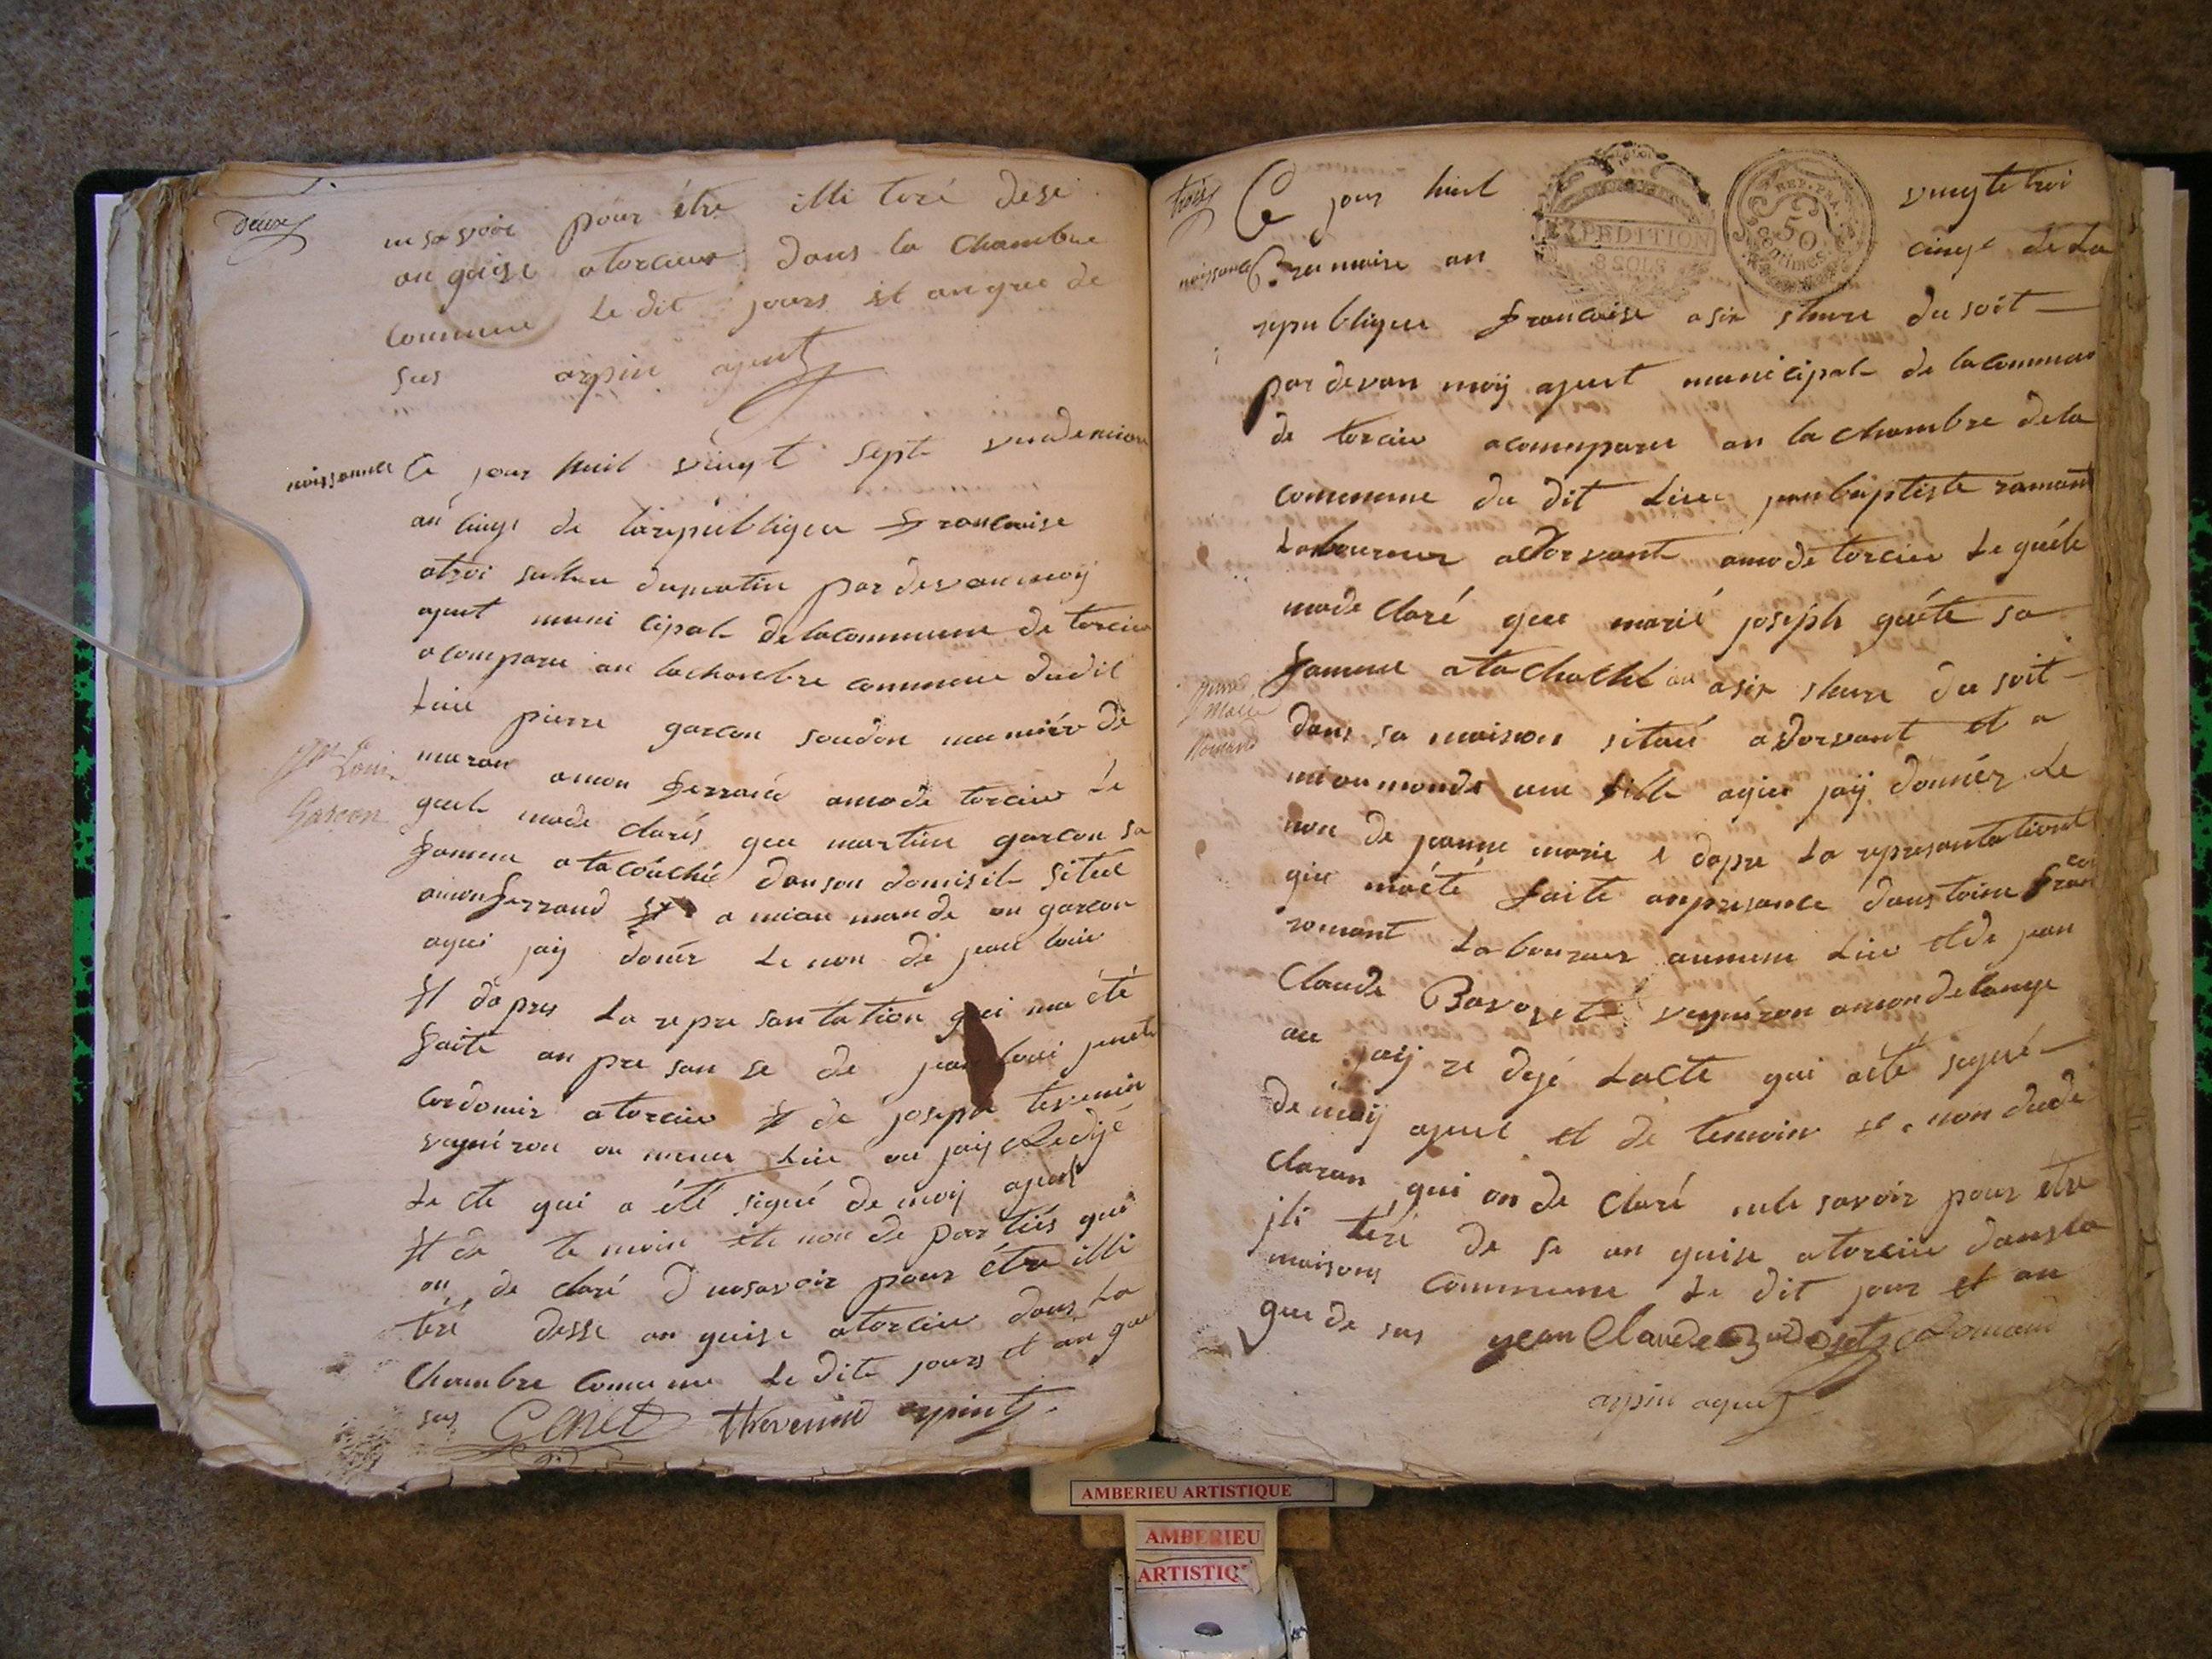 deux
nesavoir pour étre illi teré desi
an guise atorcieu dans la Chambre
Commune Le dit jours et an que de
sus arpin agent
naissance Ce jour huit vingt sept vendemiere
an cinqe de la republique francaise
atroi sulheu dumatin par devan moy
agent muni cipal de la commune de torcieu
a comparu an la chanbre commune dudit
Lieu pierre garcon soudon meunier de
maron amon ferrand amode torcieu Le
quel made clarés que martine garcon sa
famme atacouché danson domisile situé
amonferrand et a mieau monde un garcon
aqui jay donér Le non de jean louis
Jn Louis
Garçon
et dapres La repre santation qui ma été
faite an pre san se de jean loui jenete
Cordonier atorcieu et de joseph tevenin
vagniron au meme Lieu an jay Redijé
Le cte qui a été signé de moy agent
et de te moin ete non de partiés qui
on de claré nesavoir pour étre illi
téré desse an guise atorcieu dans La
Chambre Comu ne Le dite jours et an que
sus Genet thevenin arpin
trois
Ce jour huit vingtetroi
naissance Brumaire an cinqe de La
EXPEDITION
8 SOLS
REP. FRA.
50
Centimes
republique francaise asix sheure du soit
par devan moÿ agent municipal de lacommune
de torcieu acomparu an lachambre dela
commune du dit Lieu jeanbaptiste romant
Laboureur adorvant amode torcieu Le quéle
made claré que marié joséph guéte sa
famme atachaché asix sheure du soit
Jeanne
Marie
Romand
dans sa maison situé adorvant et a
mieaumonde une fille aqui jaÿ donnér Le
non de jeanne marie e dapre La representationt
qui maété faite anpresance dantoine francoi
romant Laboureur aumeme Lieu et de jean
Claude Bavozet vagniron amondelange
an jaÿ re dijé Lacte qui aété signé
de moÿ agent et de temoin et non dudé
claran qui on de claré nele savoir pour étre
ili téré de se an guise atorcieu dansla
maisons commune Le dit jour et an
que de sus jean Claude Romand
arpin agent
AMBERIEU ARTISTIQUE
AMBERIEU
ARTISTIQ